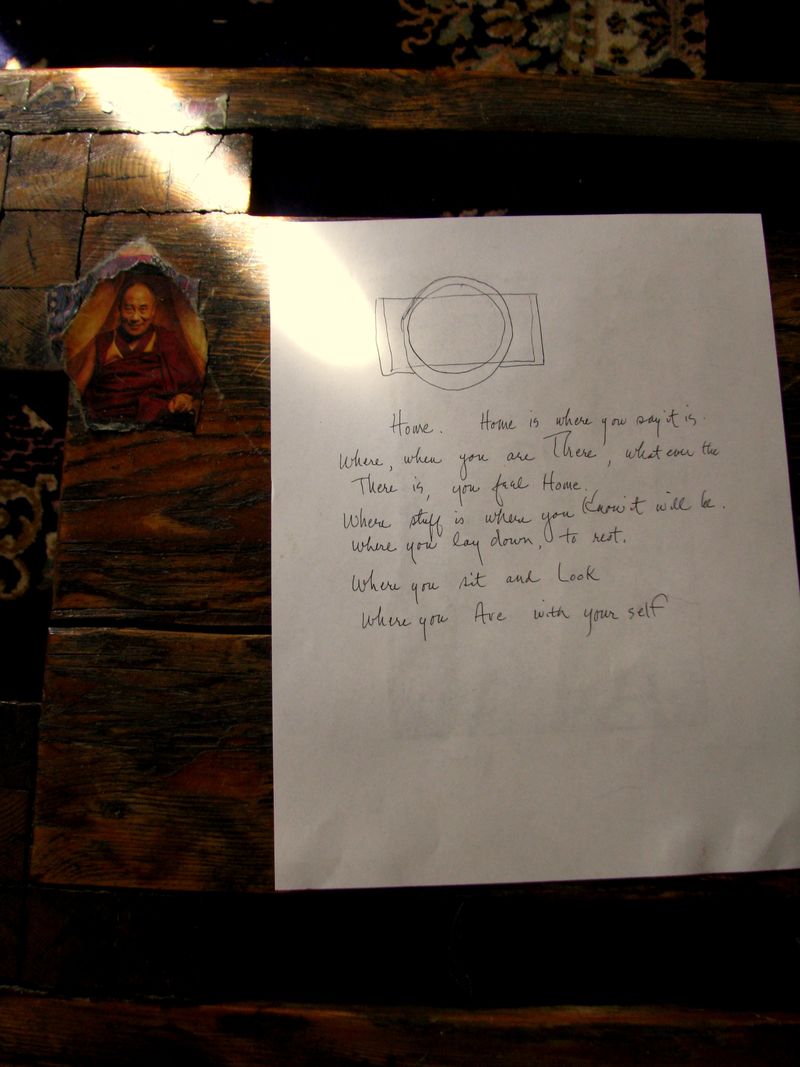 Home. Home is where you say it is.
Where, when you are There, what ever the
There is, you feel Home.
Where stuff is where you Know it will be.
Where you lay down, to rest.
Where you sit and Look
Where you Are with your self